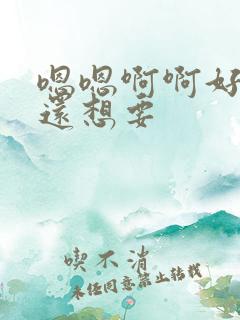 嗯嗯啊啊好
還想要
喫不消
未经同意禁止转载